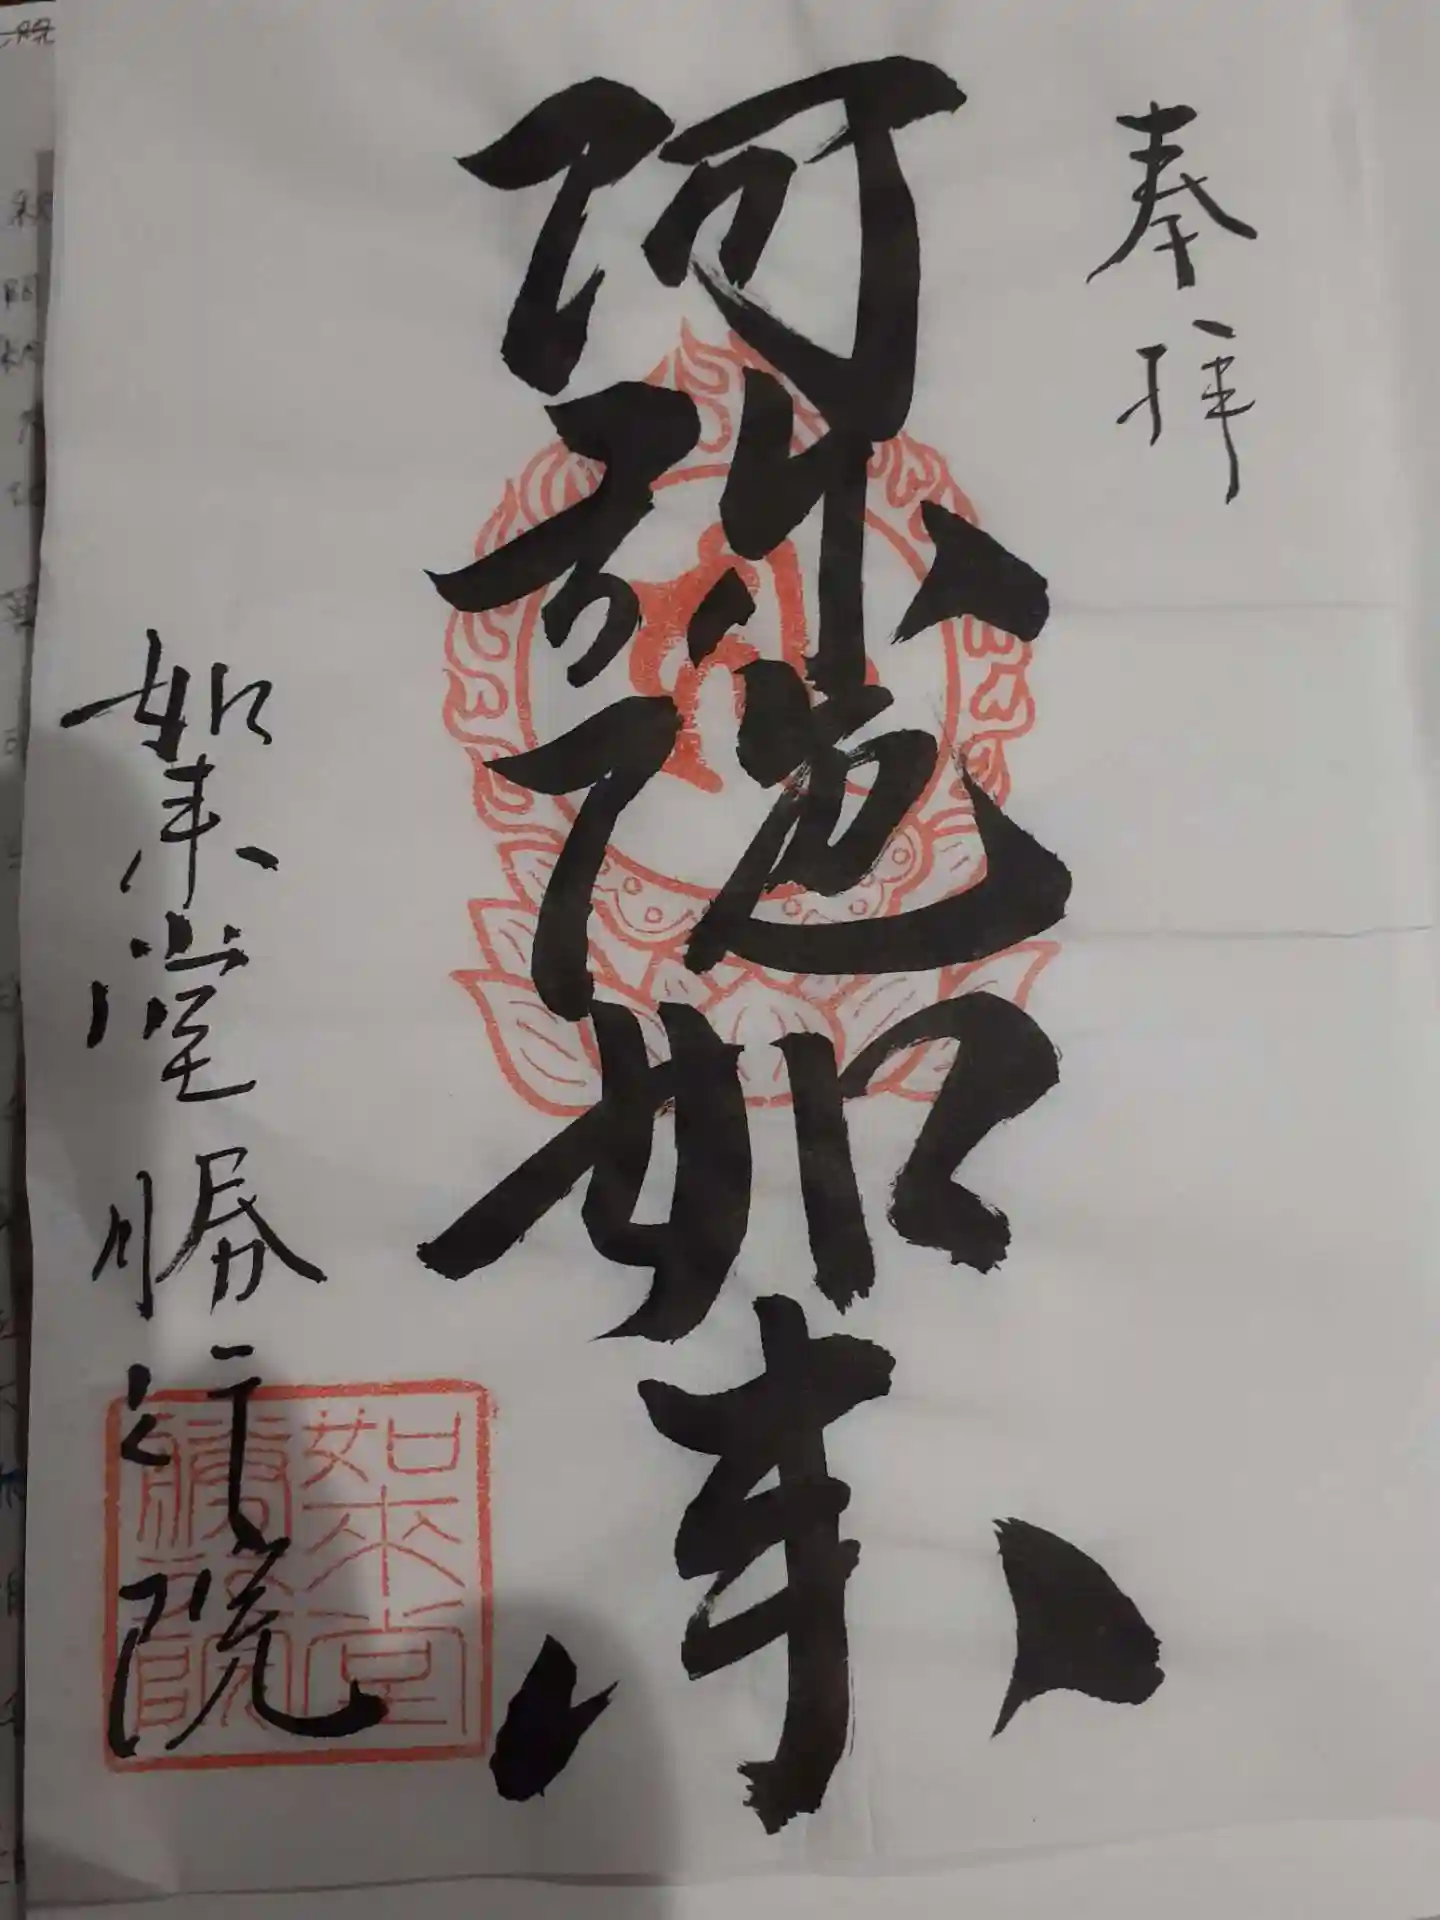 奉拝
阿弥陀如来
如来堂 勝行院
如来堂
勝行院